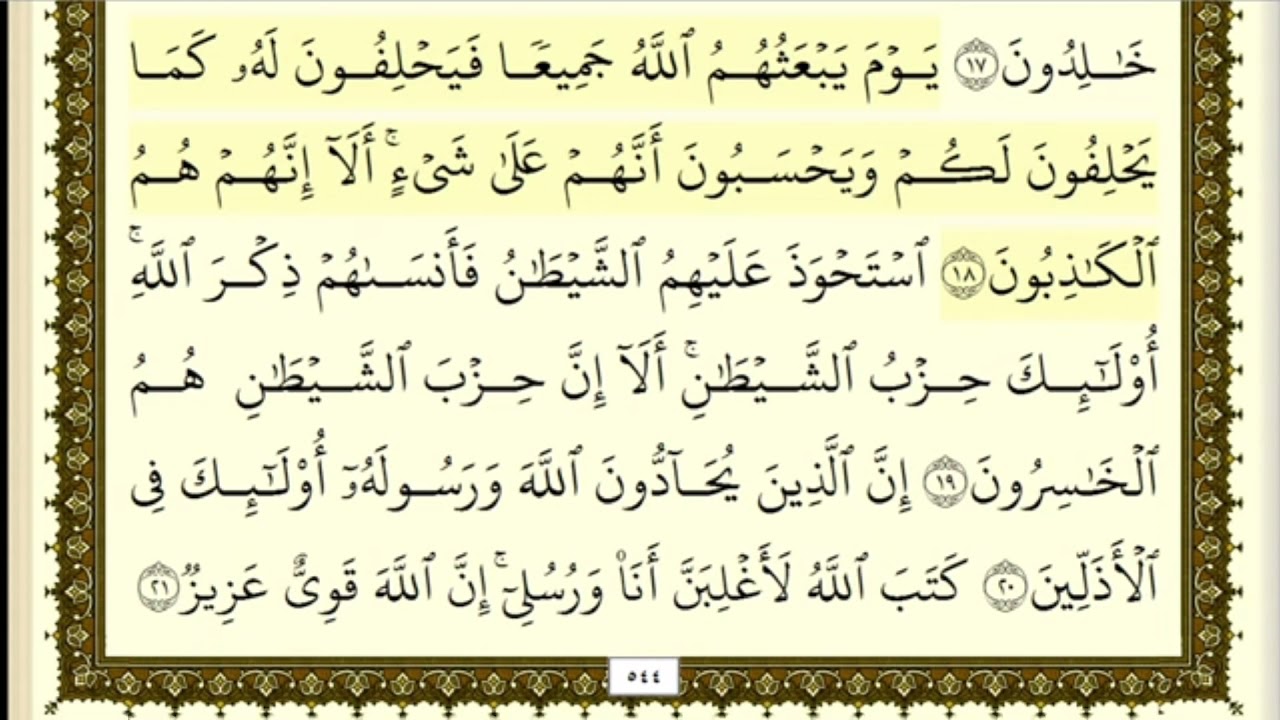 خَـٰلِدُونَ ١٧ يَـوْمَ يَبْعَثُهُـمُ ٱللَّهُ جَمِيعًـا فَيَحْلِفُـونَ لَهُۥ كَمَـا
يَحْلِفُونَ لَكُـمْ وَيَحْسَـبُونَ أَنَّهُـمْ عَلَىٰ شَىْءٍ ۚ أَلَآ إِنَّهُـمْ هُـمُ
ٱلْكَـٰذِبُونَ ١٨ ٱسْتَحْوَذَ عَلَيْهِمُ ٱلشَّيْطَـٰنُ فَأَنسَـىٰهُمْ ذِكْـرَ ٱللَّهِ ۚ
أُو۟لَـٰٓئِـكَ حِـزْبُ ٱلشَّـيْطَـٰنِ ۚ أَلَآ إِنَّ حِـزْبَ ٱلشَّـيْطَـٰنِ هُـمُ
ٱلْخَـٰسِرُونَ ١٩ إِنَّ ٱلَّذِينَ يُحَـآدُّونَ ٱللَّهَ وَرَسُـولَهُۥٓ أُو۟لَـٰٓئِـكَ فِى
ٱلْأَذَلِّينَ ٢٠ كَتَبَ ٱللَّهُ لَأَغْلِبَنَّ أَنَا۠ وَرُسُلِىٓ ۚ إِنَّ ٱللَّهَ قَوِىٌّ عَزِيزٌ ٢١
٥٤٤